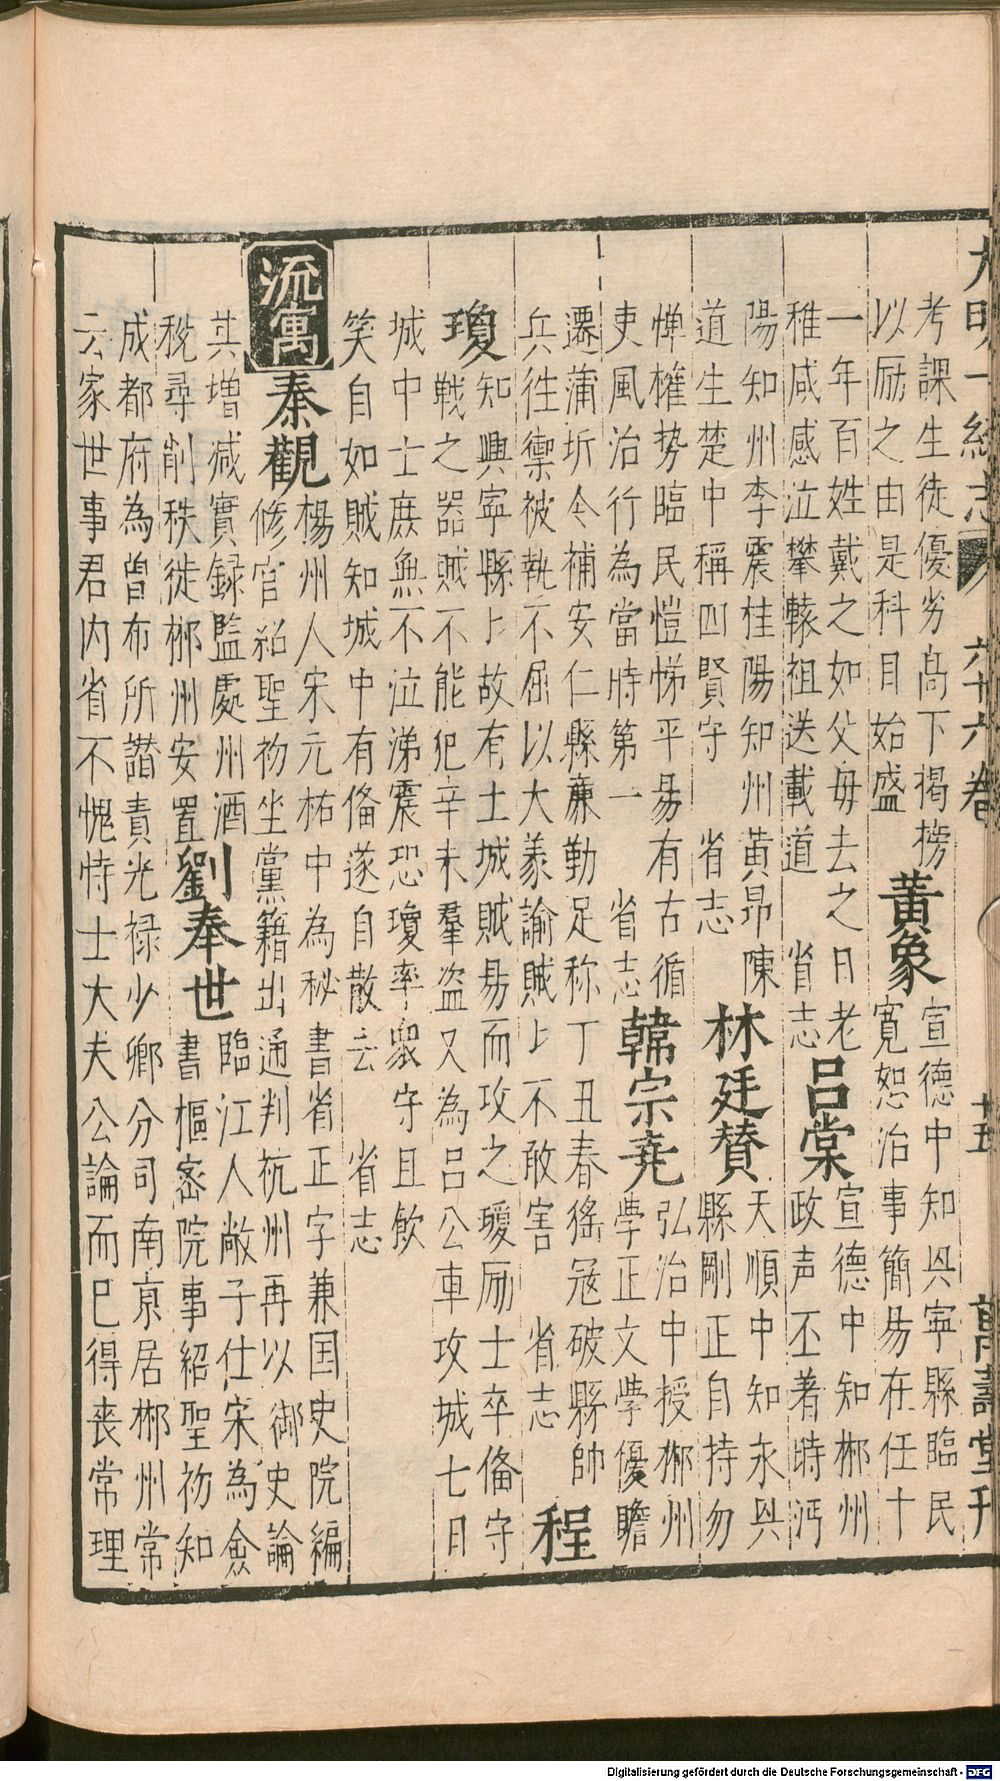 大明一統志 六十六卷 十五 萬壽堂刊
考課生徒優劣高下揭榜
以励之由是科目始盛
黃象
宣德中知兴寧縣臨民
寛恕治事簡易在任十
一年百姓戴之如父毋去之日老
稚咸感泣攀轅祖送載道 省志
呂棠
宣德中知郴州
政声丕著時沔
陽知州李震桂陽知州黃昂陳
道生楚中稱四賢守 省志
林廷贊
天順中知永兴
縣剛正自持勿
憚權势臨民愷悌平易有古循
吏風治行為當時第一 省志
韓宗尭
弘治中授郴州
學正文學優贍
遷蒲圻令補安仁縣亷勤足称丁丑春徭冦破縣帥
兵往禦被執不屈以大義諭賊〻不敢害 省志
程
瓊
知興寧縣〻故有土城賊易而攻之瓊励士卒俻守
戰之器賊不能犯辛未羣盗又為呂公車攻城七日
城中士庶無不泣涕震恐瓊率衆守且飲
笑自如賊知城中有俻遂自散去 省志
流寓
秦觀
楊州人宋元祐中為秘書省正字兼国史院編
修官紹聖初坐黨籍出通判杭州再以御史論
其增减實録監處州酒
稅尋削秩徙郴州安置
劉奉世
臨江人敞子仕宋為僉
書樞密院事紹聖初知
成都府為曾布所譖責光禄少卿分司南京居郴州常
云家世事君内省不愧恃士大夫公論而巳得丧常理
Digitalisierung gefördert durch die Deutsche Forschungsgemeinschaft - DFG